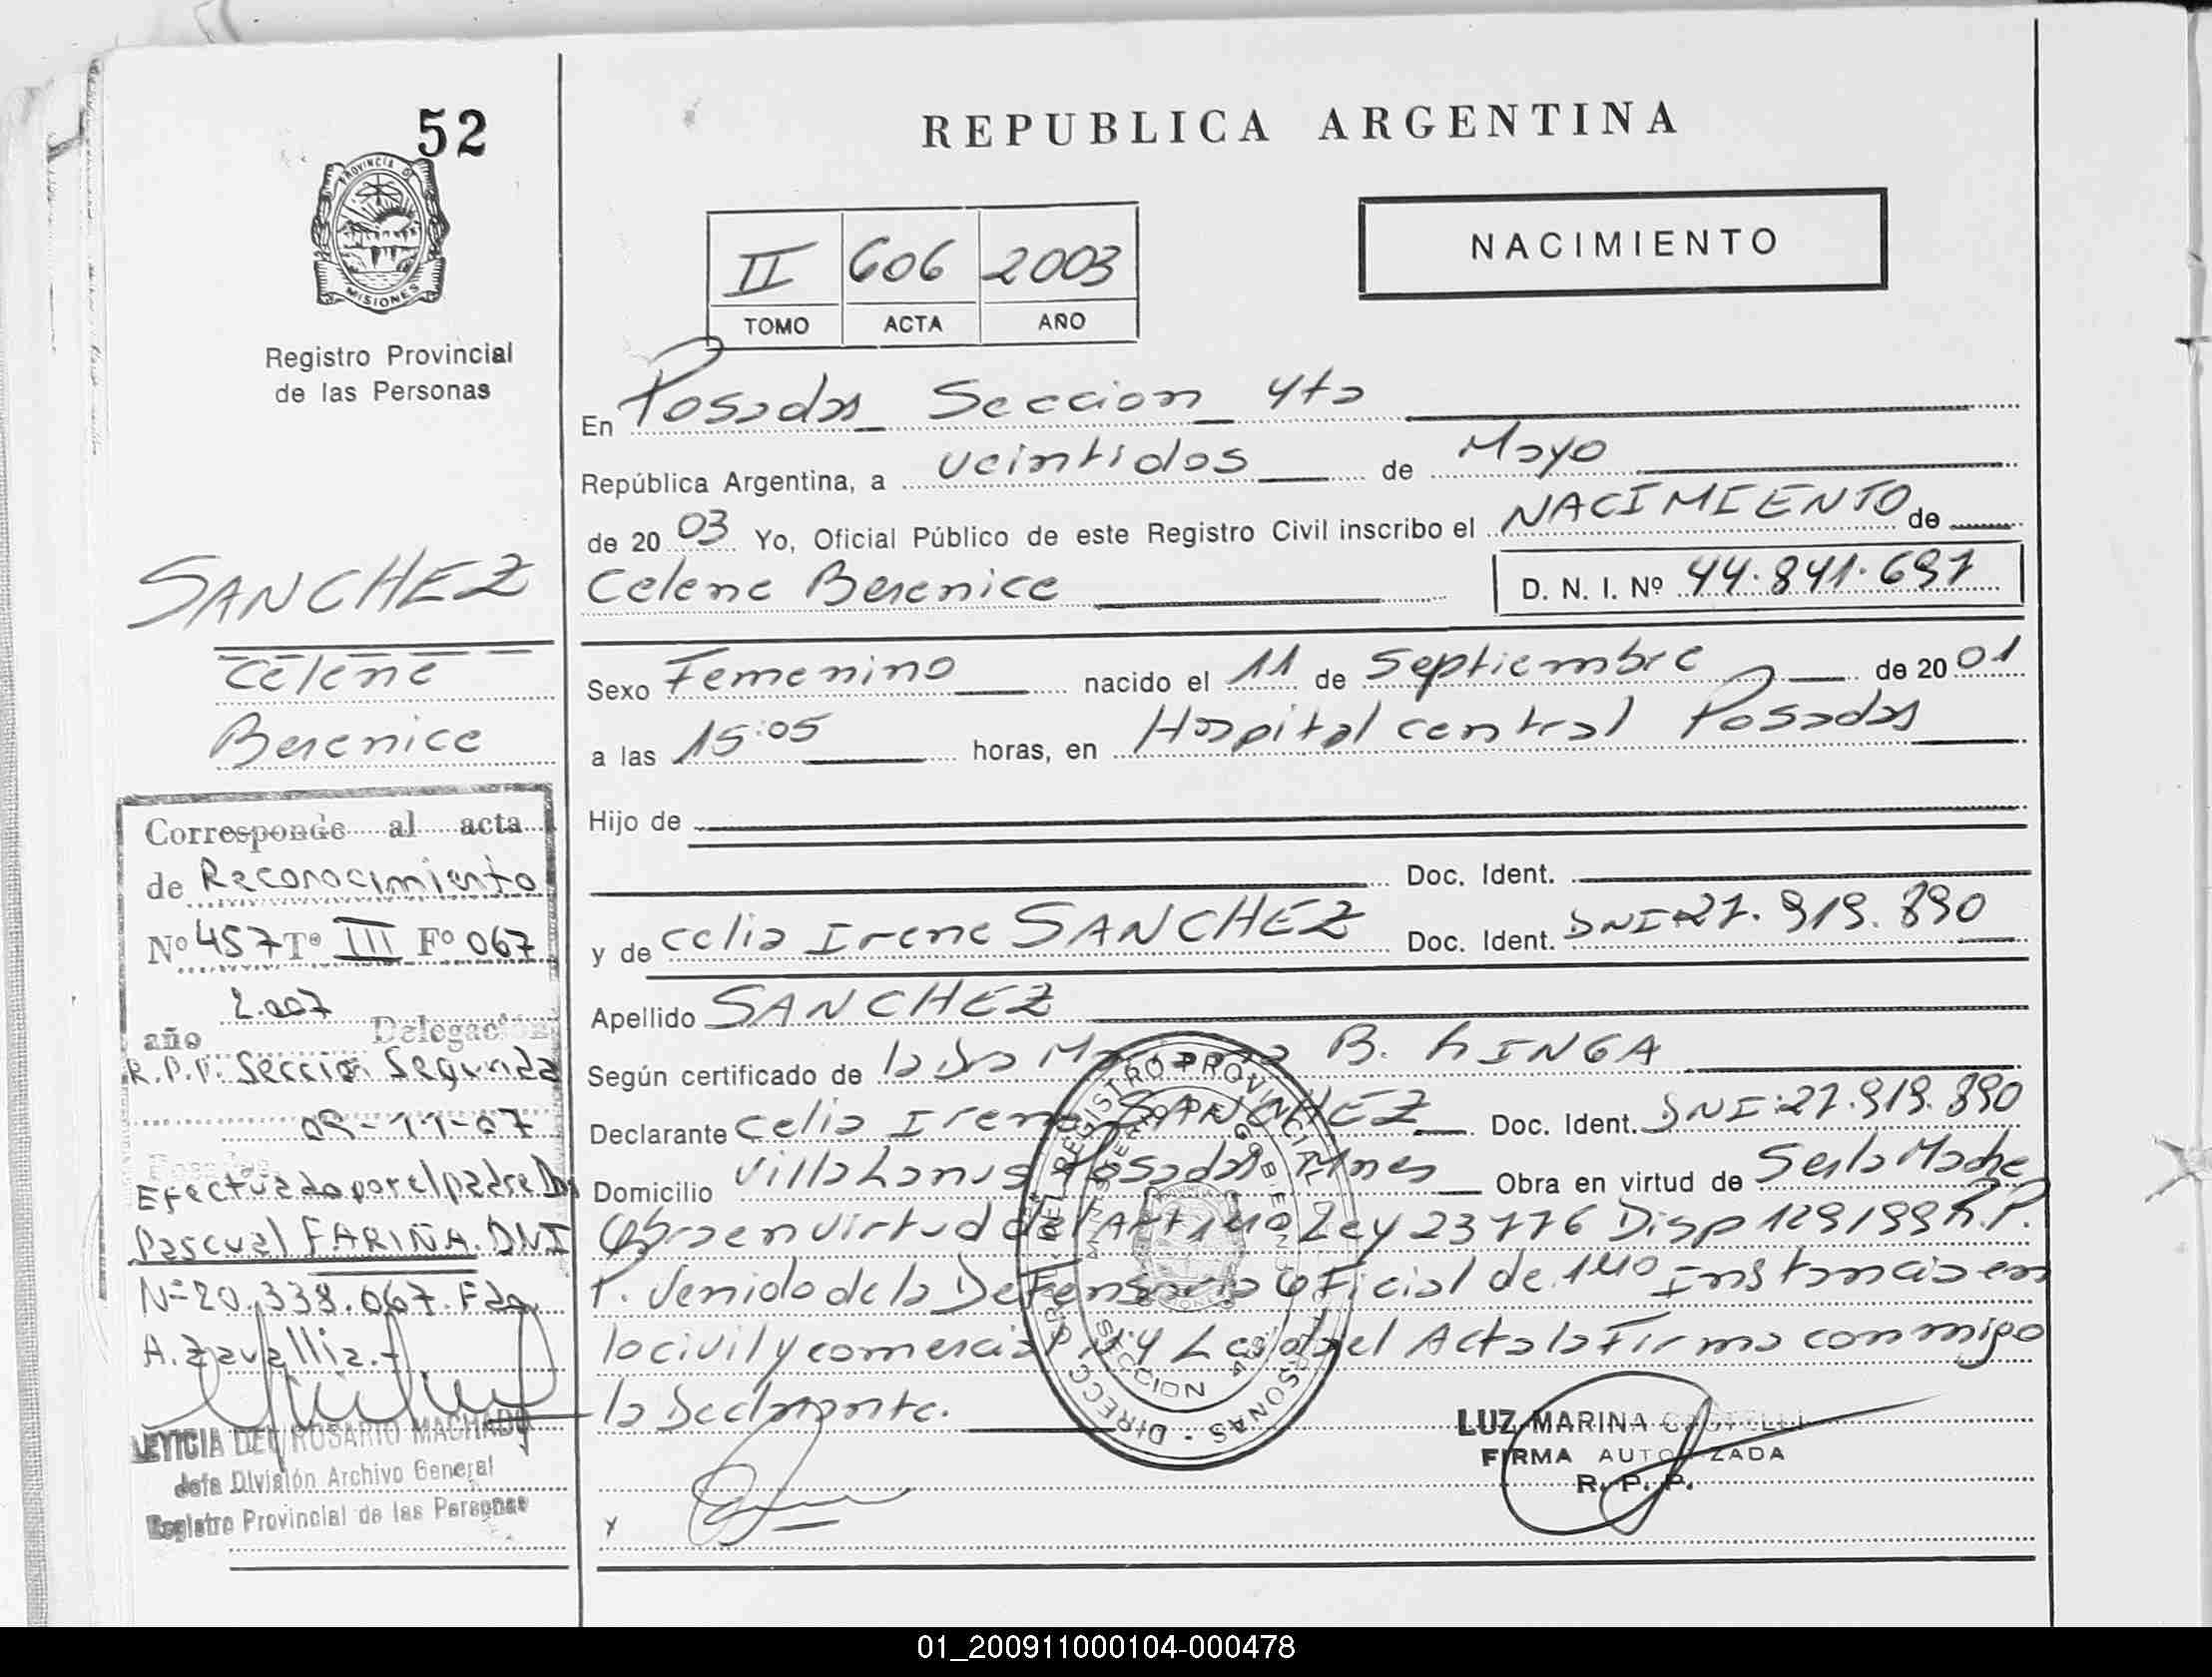 52
PROVINCIA DE
MISIONES
Registro Provincial
de las Personas
SANCHEZ
Celene
Berenice
Corresponde al acta
de Reconocimiento
Nº 457 Tº III Fº 067
2.007
año Delegación
R.P.P. Sección Segunda
09-11-07
Posadas
Efectuado por el padre Dn
Pascual FARIÑA. DNI
Nº 20.338.067. Fdo
A. Zavallia.-
LETICIA DEL ROSARIO MACHADO
Jefe División Archivo General
Registro Provincial de las Personas
REPUBLICA ARGENTINA
II 606 2003
TOMO ACTA AÑO
NACIMIENTO
En Posadas Seccion 4ta
República Argentina, a veintidos de Mayo
de 20 03 Yo, Oficial Público de este Registro Civil inscribo el NACIMIENTO de
Celene Berenice D. N. I. Nº 44.841.697
Sexo Femenino nacido el 11 de Septiembre de 20 01
a las 15:05 horas, en Hospital central Posadas
Hijo de
Doc. Ident.
y de Celia Irene SANCHEZ Doc. Ident. DNI 27.919.890
Apellido SANCHEZ
Según certificado de la Dra B. LINGA
Declarante Celia Irene SANCHEZ Doc. Ident. DNI:27.919.890
Domicilio Villa Lanus Posadas Mnes Obra en virtud de Ser la Madre
Obra en virtud del Art 1ro Ley 23776 Disp 129/99 R.P.
P. Venido de la Defensoria Oficial de 1ro Instancia en
lo civil y comercial Nº4 Leida el Acta la Firma conmigo
la Declarante.
LUZ MARINA
FIRMA AUTORIZADA
R. P. P.
01_200911000104-000478